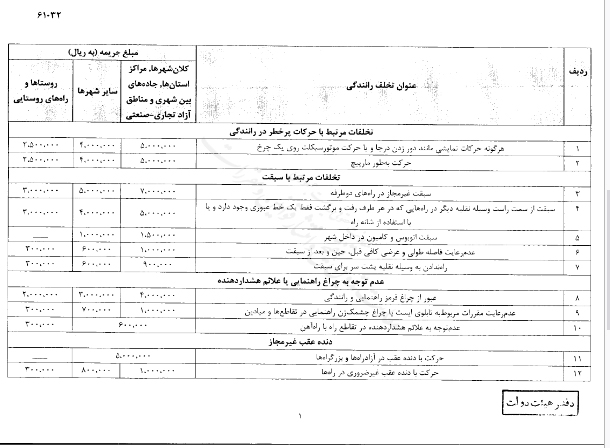 ۶۱-۳۲
ردیف
عنوان تخلف رانندگی
مبلغ جریمه (به ریال)
کلان‌شهرها، مراکز استان‌ها، جاده‌های بین شهری و مناطق آزاد تجاری-صنعتی
سایر شهرها
روستاها و راه‌های روستایی
تخلفات مرتبط با حرکات پرخطر در رانندگی
۱ هرگونه حرکات نمایشی مانند دور زدن درجا و یا حرکت موتورسیکلت روی یک چرخ ۵.۰۰۰.۰۰۰ ۴.۰۰۰.۰۰۰ ۲.۵۰۰.۰۰۰
۲ حرکت به‌طور مارپیچ ۵.۰۰۰.۰۰۰ ۴.۰۰۰.۰۰۰ ۲.۵۰۰.۰۰۰
تخلفات مرتبط با سبقت
۳ سبقت غیرمجاز در راه‌های دوطرفه ۷.۰۰۰.۰۰۰ ۵.۰۰۰.۰۰۰ ۳.۰۰۰.۰۰۰
۴ سبقت از سمت راست وسیله نقلیه دیگر در راه‌هایی که در هر طرف رفت و برگشت فقط یک خط عبوری وجود دارد و یا
با استفاده از شانه راه ۵.۰۰۰.۰۰۰ ۴.۰۰۰.۰۰۰ ۳.۰۰۰.۰۰۰
۵ سبقت اتوبوس و کامیون در داخل شهر ۱.۵۰۰.۰۰۰ ۱.۰۰۰.۰۰۰ ــــ
۶ عدم‌رعایت فاصله طولی و عرضی کافی قبل، حین و بعد از سبقت ۱.۰۰۰.۰۰۰ ۶۰۰.۰۰۰ ۳۰۰.۰۰۰
۷ راه‌ندادن به وسیله نقلیه پشت سر برای سبقت ۹۰۰.۰۰۰ ۶۰۰.۰۰۰ ۳۰۰.۰۰۰
عدم توجه به چراغ راهنمایی یا علائم هشداردهنده
۸ عبور از چراغ قرمز راهنمایی و رانندگی ۴.۰۰۰.۰۰۰ ۳.۰۰۰.۰۰۰ ۲.۰۰۰.۰۰۰
۹ عدم‌رعایت مقررات مربوط‌به تابلوی ایست یا چراغ چشمک‌زن راهنمایی در تقاطع‌ها و میادین ۱.۰۰۰.۰۰۰ ۷۰۰.۰۰۰ ۳۰۰.۰۰۰
۱۰ عدم‌توجه به علائم هشداردهنده در تقاطع راه با راه‌آهن ۶۰۰.۰۰۰ ۳۰۰.۰۰۰
دنده عقب غیرمجاز
۱۱ حرکت با دنده عقب در آزادراه‌ها و بزرگراه‌ها ۵.۰۰۰.۰۰۰ ــــ
۱۲ حرکت با دنده عقب غیرضروری در راه‌ها ۱.۰۰۰.۰۰۰ ۸۰۰.۰۰۰ ۳۰۰.۰۰۰
دفتر هیئت دولت
۱